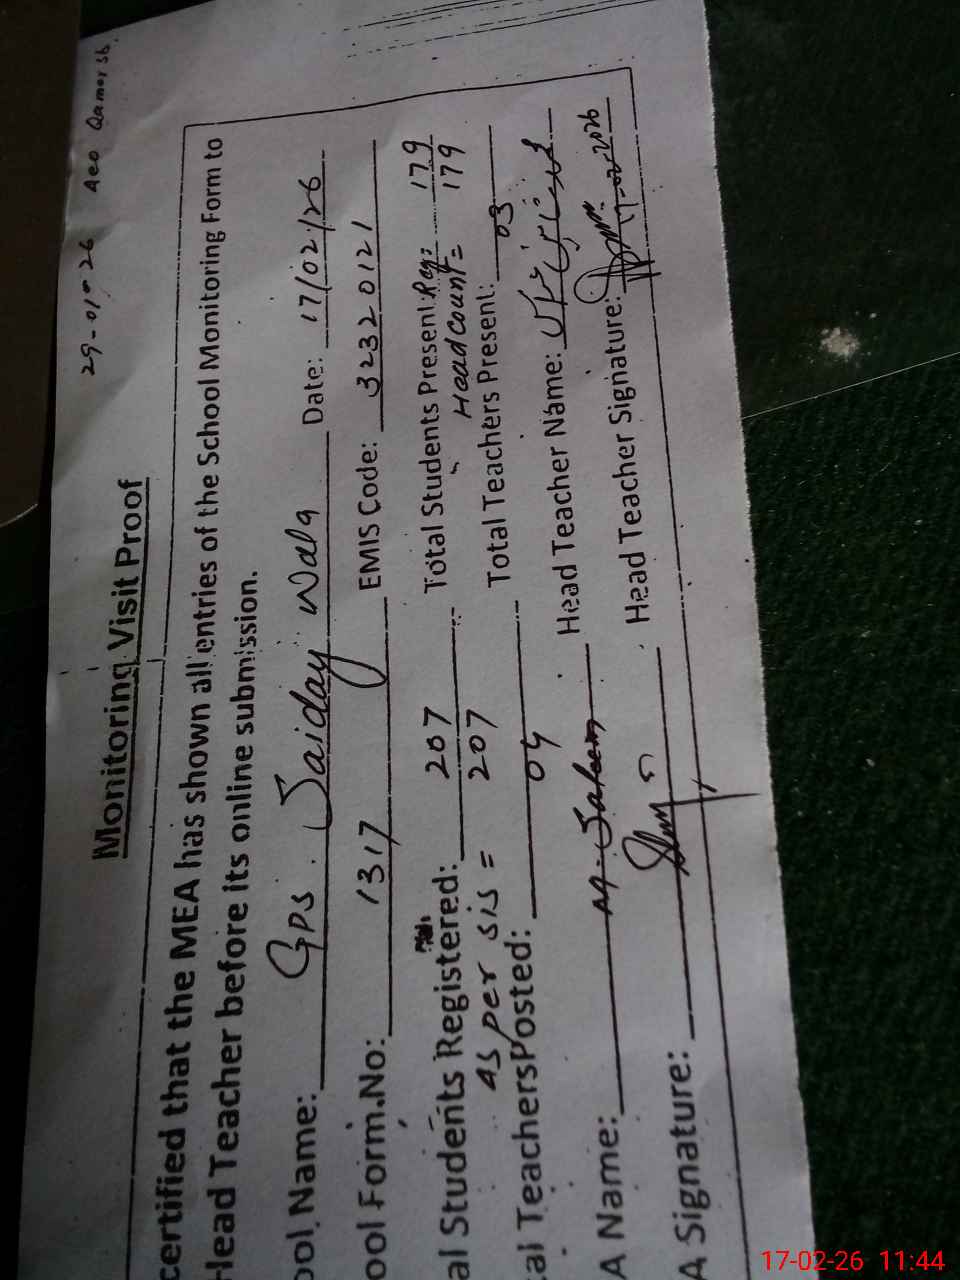 29-01-26 Aeo Qamar sb.
Monitoring Visit Proof
certified that the MEA has shown all entries of the School Monitoring Form to
Head Teacher before its online submission.
ool Name: GPS. Jaiday Wala Date: 17/02/26
ool Form.No: 1317 EMIS Code: 32320121
al Students Registered: 207 Total Students Present: Reg: 179
as per sis = 207 Headcount = 179
tal Teachers Posted: 04 Total Teachers Present: 03
A Name: M. Saleem Head Teacher Name:
A Signature: Head Teacher Signature: 17-02-2026
17-02-26 11:44